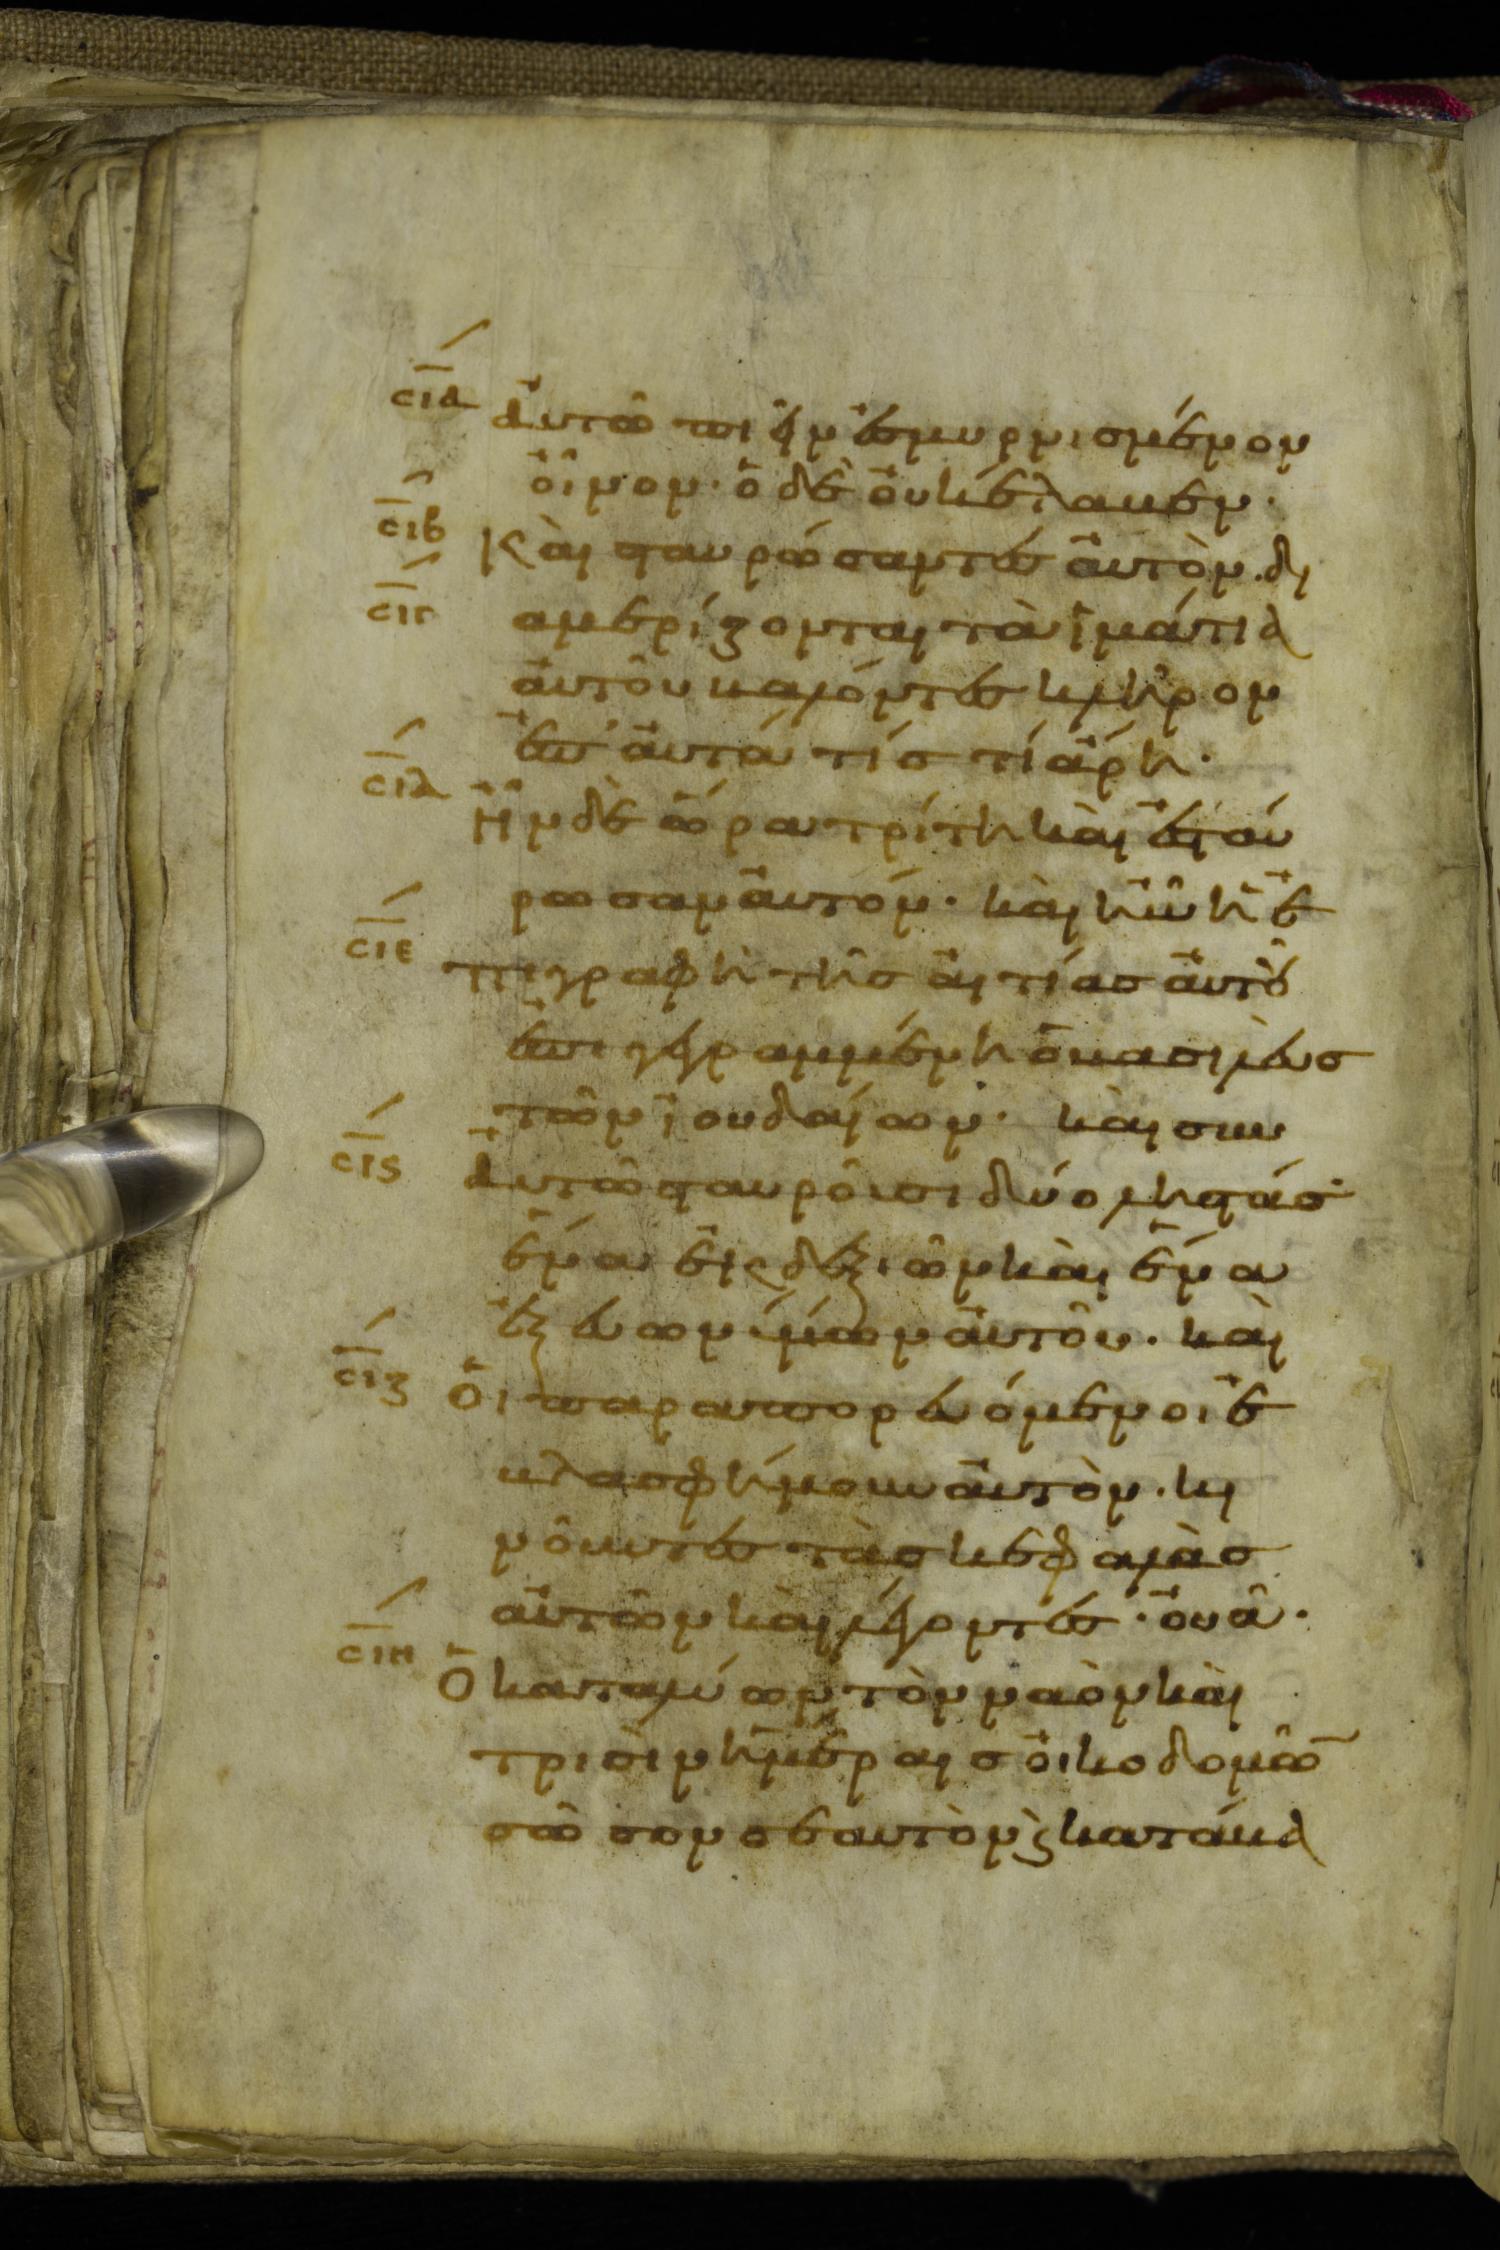 σια αὐτῶ πιεῖν ἐσμυρνισμένον
οἶνον· ὁ δὲ οὐκ ἔλαβεν·
σιβ Καὶ σταυρώσαντες αὐτὸν. δι
σιγ αμερίζονται τὰ ἱμάτια
αὐτοῦ βαλόντες κλῆρον
ἐπ' αὐτά τίς τί ἄρη·
σιδ Ἦν δὲ ὥρα τρίτη καὶ ἐσταύ
ρωσαν αὐτόν· καὶ ἦν ἡ ἐ
σιε πιγραφὴ τῆς αἰτίας αὐτοῦ
ἐπιγεγραμμένη ὁ βασιλεὺς
τῶν ἰουδαίων· καὶ συν
σιϛ αὐτῶ σταυροῦσι δύο ληστάς·
ἕνα ἐκ δεξιῶν καὶ ἕνα
ἐξ εὐωνύμων αὐτοῦ. καὶ
σιζ Οἱ παραπορευόμενοι ἐ
βλασφήμουν αὐτὸν. κι
νοῦντες τὰς κεφαλὰς
αὐτῶν καὶ λέγοντες· οὐᾶ.
σιη Ὁ καταλύων τὸν ναὸν καὶ
τρισὶν ἡμέραις οἰκοδομῶ̅
σῶσον σεαυτὸν ϗ κατάβα